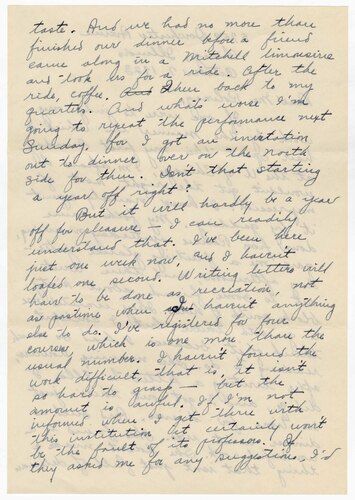 taste. And we had no more than
finished our dinner before a friend
came along in a Mitchell limousine
and took us for a ride. After the
ride, coffee. And Then back to my
quarters. And what's worse I'm
going to repeat the performance next
Sunday, for I got an invitation
out to dinner over on the North
side for then. Isn't that starting
a year off right?
But it will hardly be a year
off for pleasure — I can readily
understand that. I've been here
just one week now, and I haven't
loafed one second. Writing letters will
have to be done as recreation, not
as pastime when I haven't anything
else to do. I've registered for four
courses which is one more than the
usual number. I haven't found the
work difficult, that is, it isn't
so hard to grasp — but the
amount is awful. If I'm not
informed when I get thru with
this institution it certainly won't
be the fault of its professors. If
they asked me for any suggestions, I'd